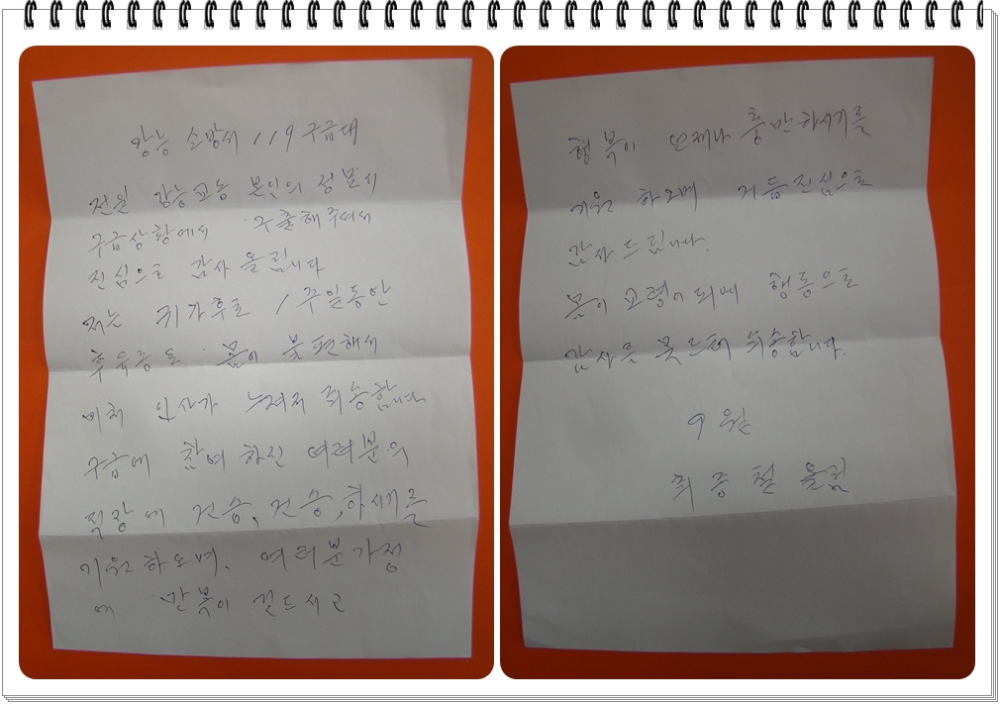 강능 소방서 119 구급대
전일 강능교동 본인의 정본서
구급상황에서 구출해주셔서
진심으로 감사 올립니다
저는 귀가후로 1주일동안
후유증도 몸이 불편해서
미처 인사가 늦어저 죄송합니다
구급에 참여 하신 여러분의
직장에 건승, 건승, 하시기를
기원하오며, 여러분가정
에 만복이 깃드시고
행복이 언제나 충만하시기를
기원 하오며 거듭진심으로
감사 드립니다.
몸이 고령이 되여 행동으로
감사를 못드려 죄송합니다.
9월
최종철 올림